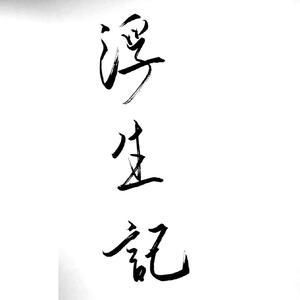 浮生記